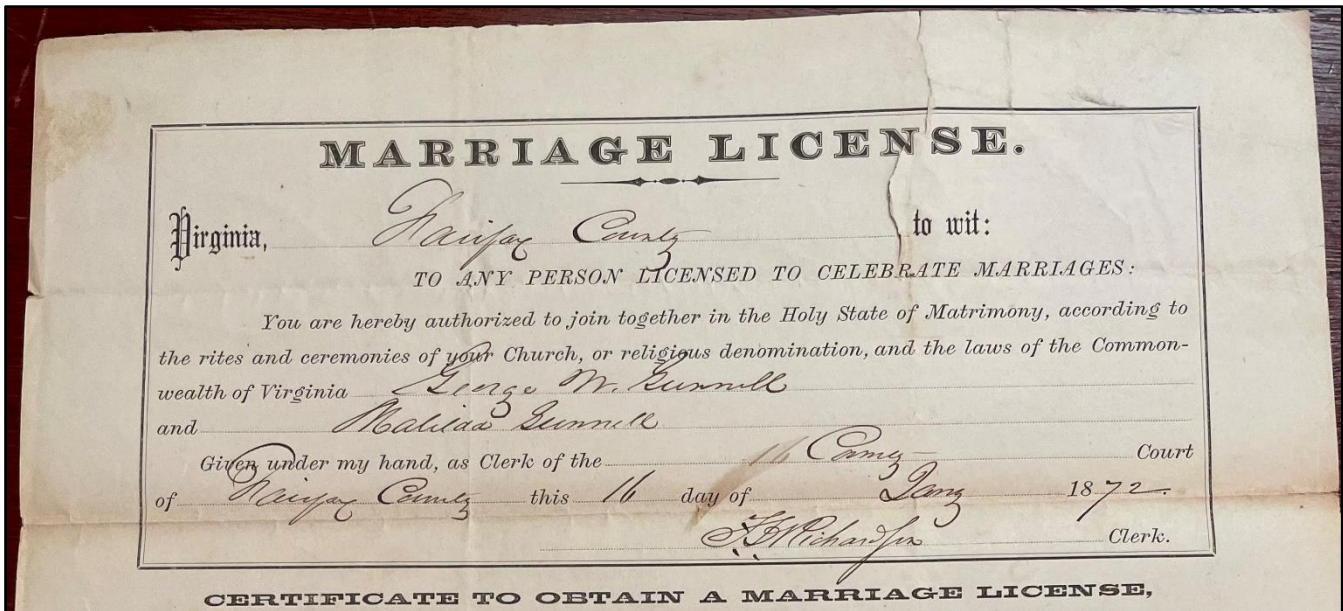 MARRIAGE LICENSE.
Virginia, Fairfax County to wit:
TO ANY PERSON LICENSED TO CELEBRATE MARRIAGES:
You are hereby authorized to join together in the Holy State of Matrimony, according to
the rites and ceremonies of your Church, or religious denomination, and the laws of the Common-
wealth of Virginia George W. Gunnell
and Matilda Gunnell
Given under my hand, as Clerk of the County Court
of Fairfax County this 16 day of Jany 1872.
F.D. Richardson Clerk.
CERTIFICATE TO OBTAIN A MARRIAGE LICENSE,